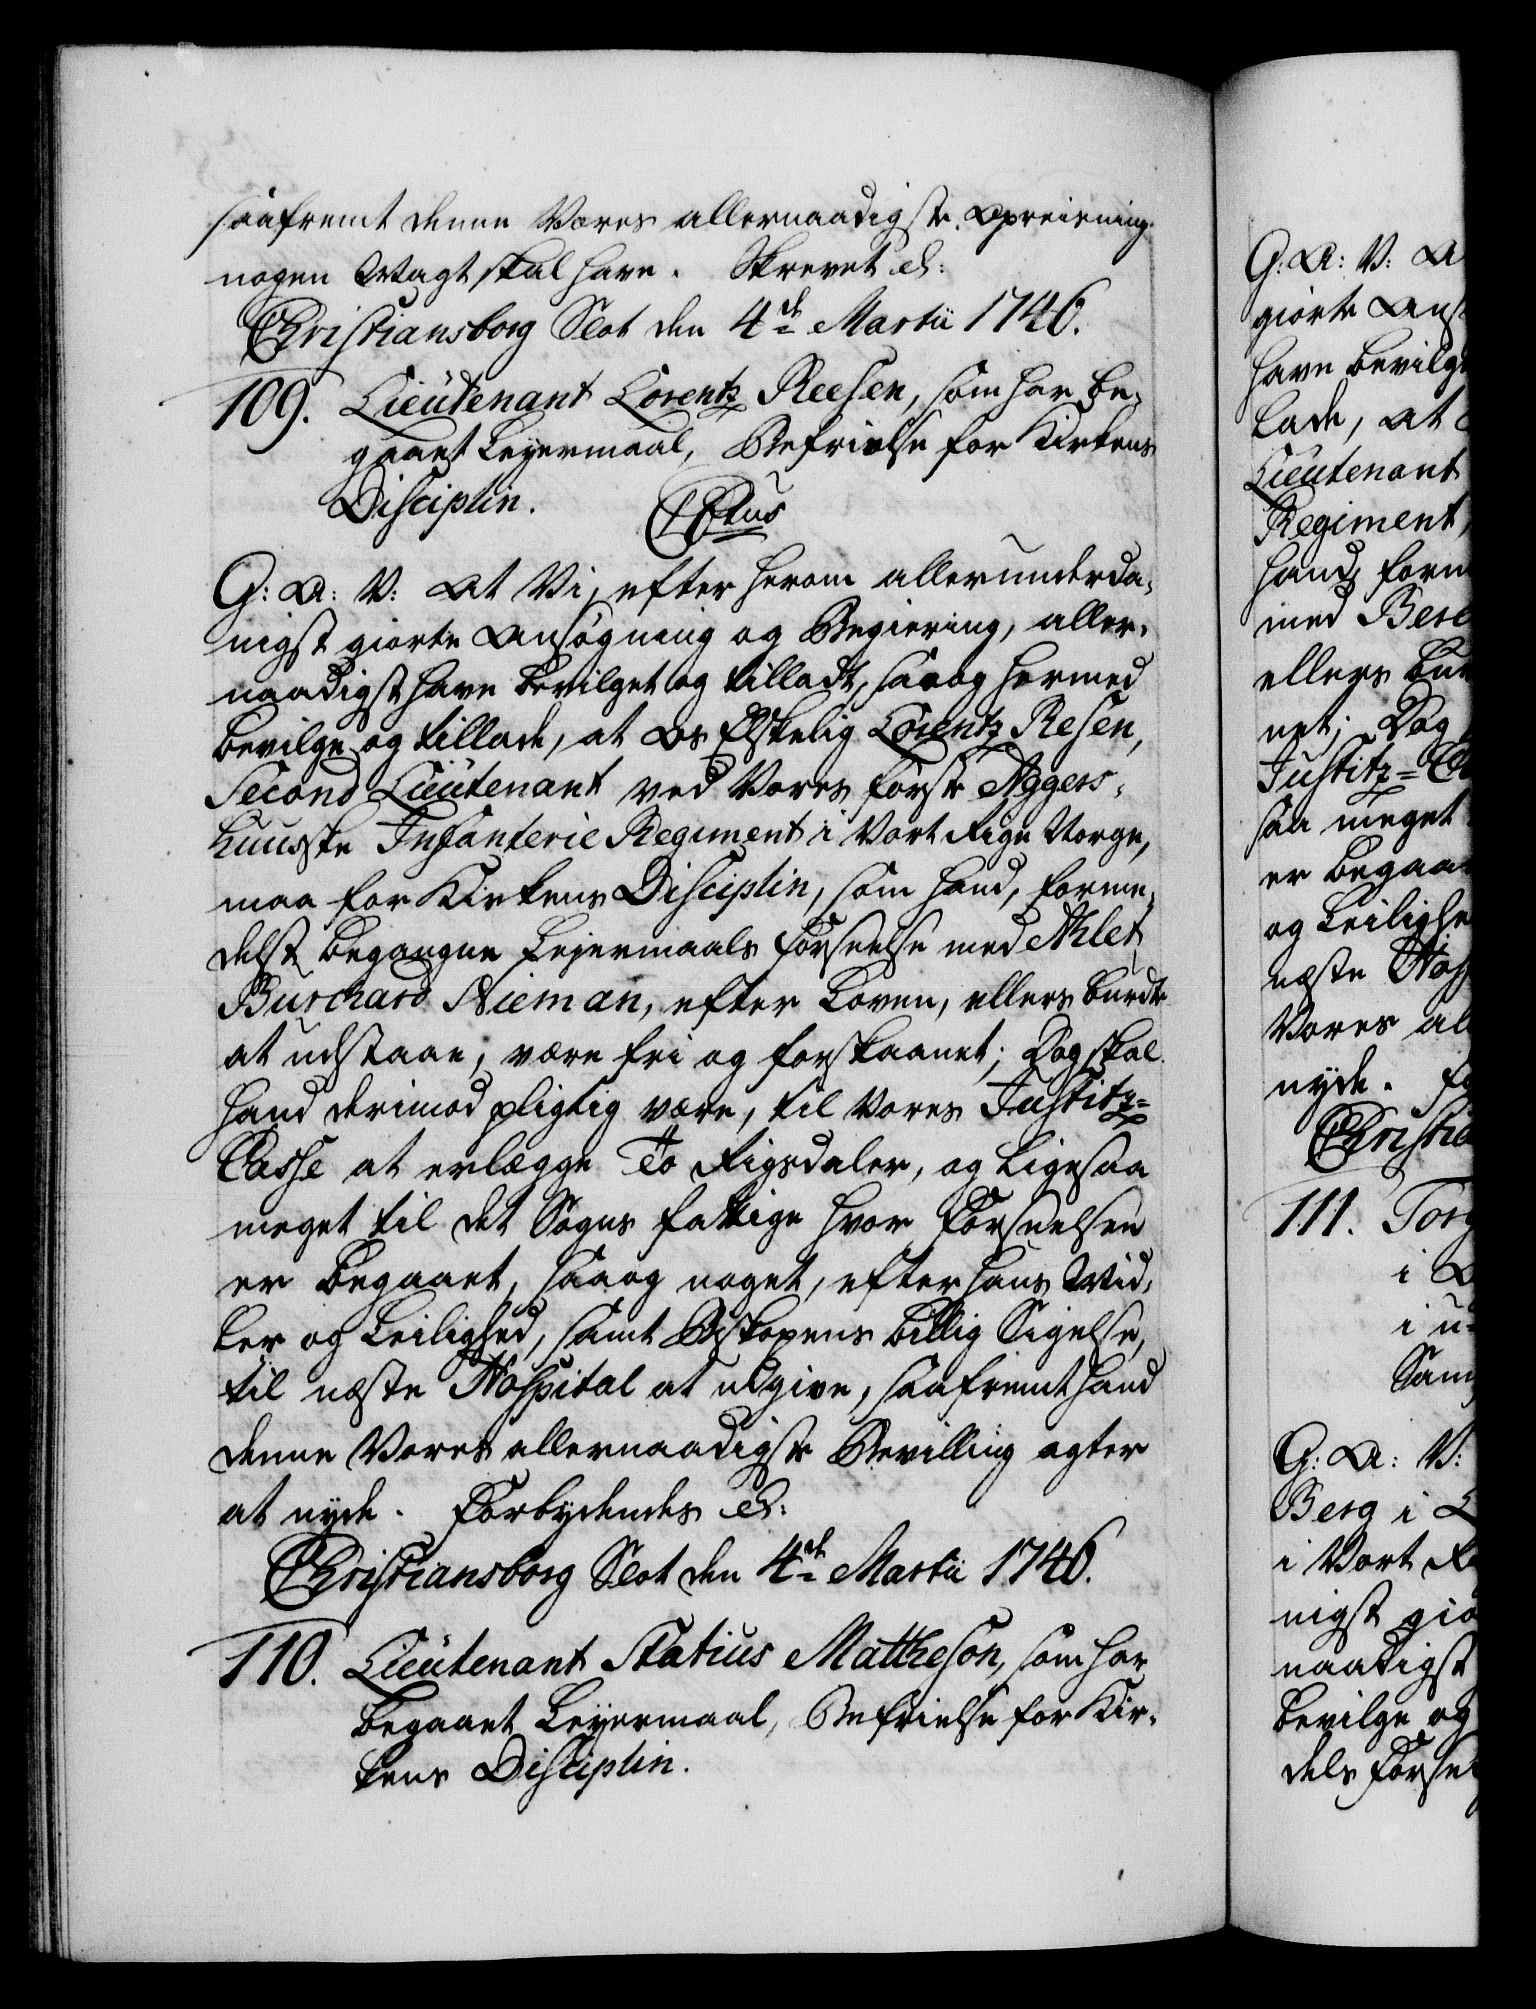 saafremt denne Vores allernaadigste Opreisning
nogen Magt skal have. Skrevet etc:
Christiansborg Slot den 4de Martii 1746.
109. Lieutenant Lorentz Reesen, som har be-
gaaet Leyermaal, Befrielse for Kirkens
Disciplin.
CStus
G: A: V: At Vi, efter herom allerunderda-
nigst giorte Ansøgning og Begiering, aller-
naadigst have bevilget og tilladt, saa og hermed
bevilge og tillade, at Os Elskelig Lorentz Resen,
Second Lieutenant ved Vores første Aggers-
huusske Infanterie Regiment i Vort Rige Norge,
maa for Kirkens Disciplin, som hand, forme-
delst begangne Lejermaals Forseelse med Ahlet
Burchard Nieman, efter Loven, ellers burde
at udstaae, være fri og forskaanet; Dog skal
hand derimod pligtig være, til Vores Justitz-
Casse at erlægge To Rigsdaler, og ligesaa
meget til det Sogns fattige hvor Forseelsen
er begaaet, saa og noget, efter hans Mid-
ler og Leilighed, samt Biskopens billig Sigelse,
til næste Hospital at udgive, saafremt hand
denne Vores allernaadigste Bevilling agter
at nyde. Forbydendes etc:
Christiansborg Slot den 4de Martii 1746.
110. Lieutenant Statius Mattheson, som har
begaaet Leyermaal, Befrielse for Kir-
kens Disciplin.
G: A: V: A
giorte Ans
have bevilg
lade, at
Lieutenant
Regiment,
hand, form
med Bere
ellers bur
net; Dog
Justitz-C
saa meget
er begaa
og Leilighe
næste Hos
Vores al
nyde. Fo
Christia
111. Torg
i
i u
Sam
G: A: V:
Berg i
i Vort R
nigst gio
naadigst
bevilge og
dels Forse